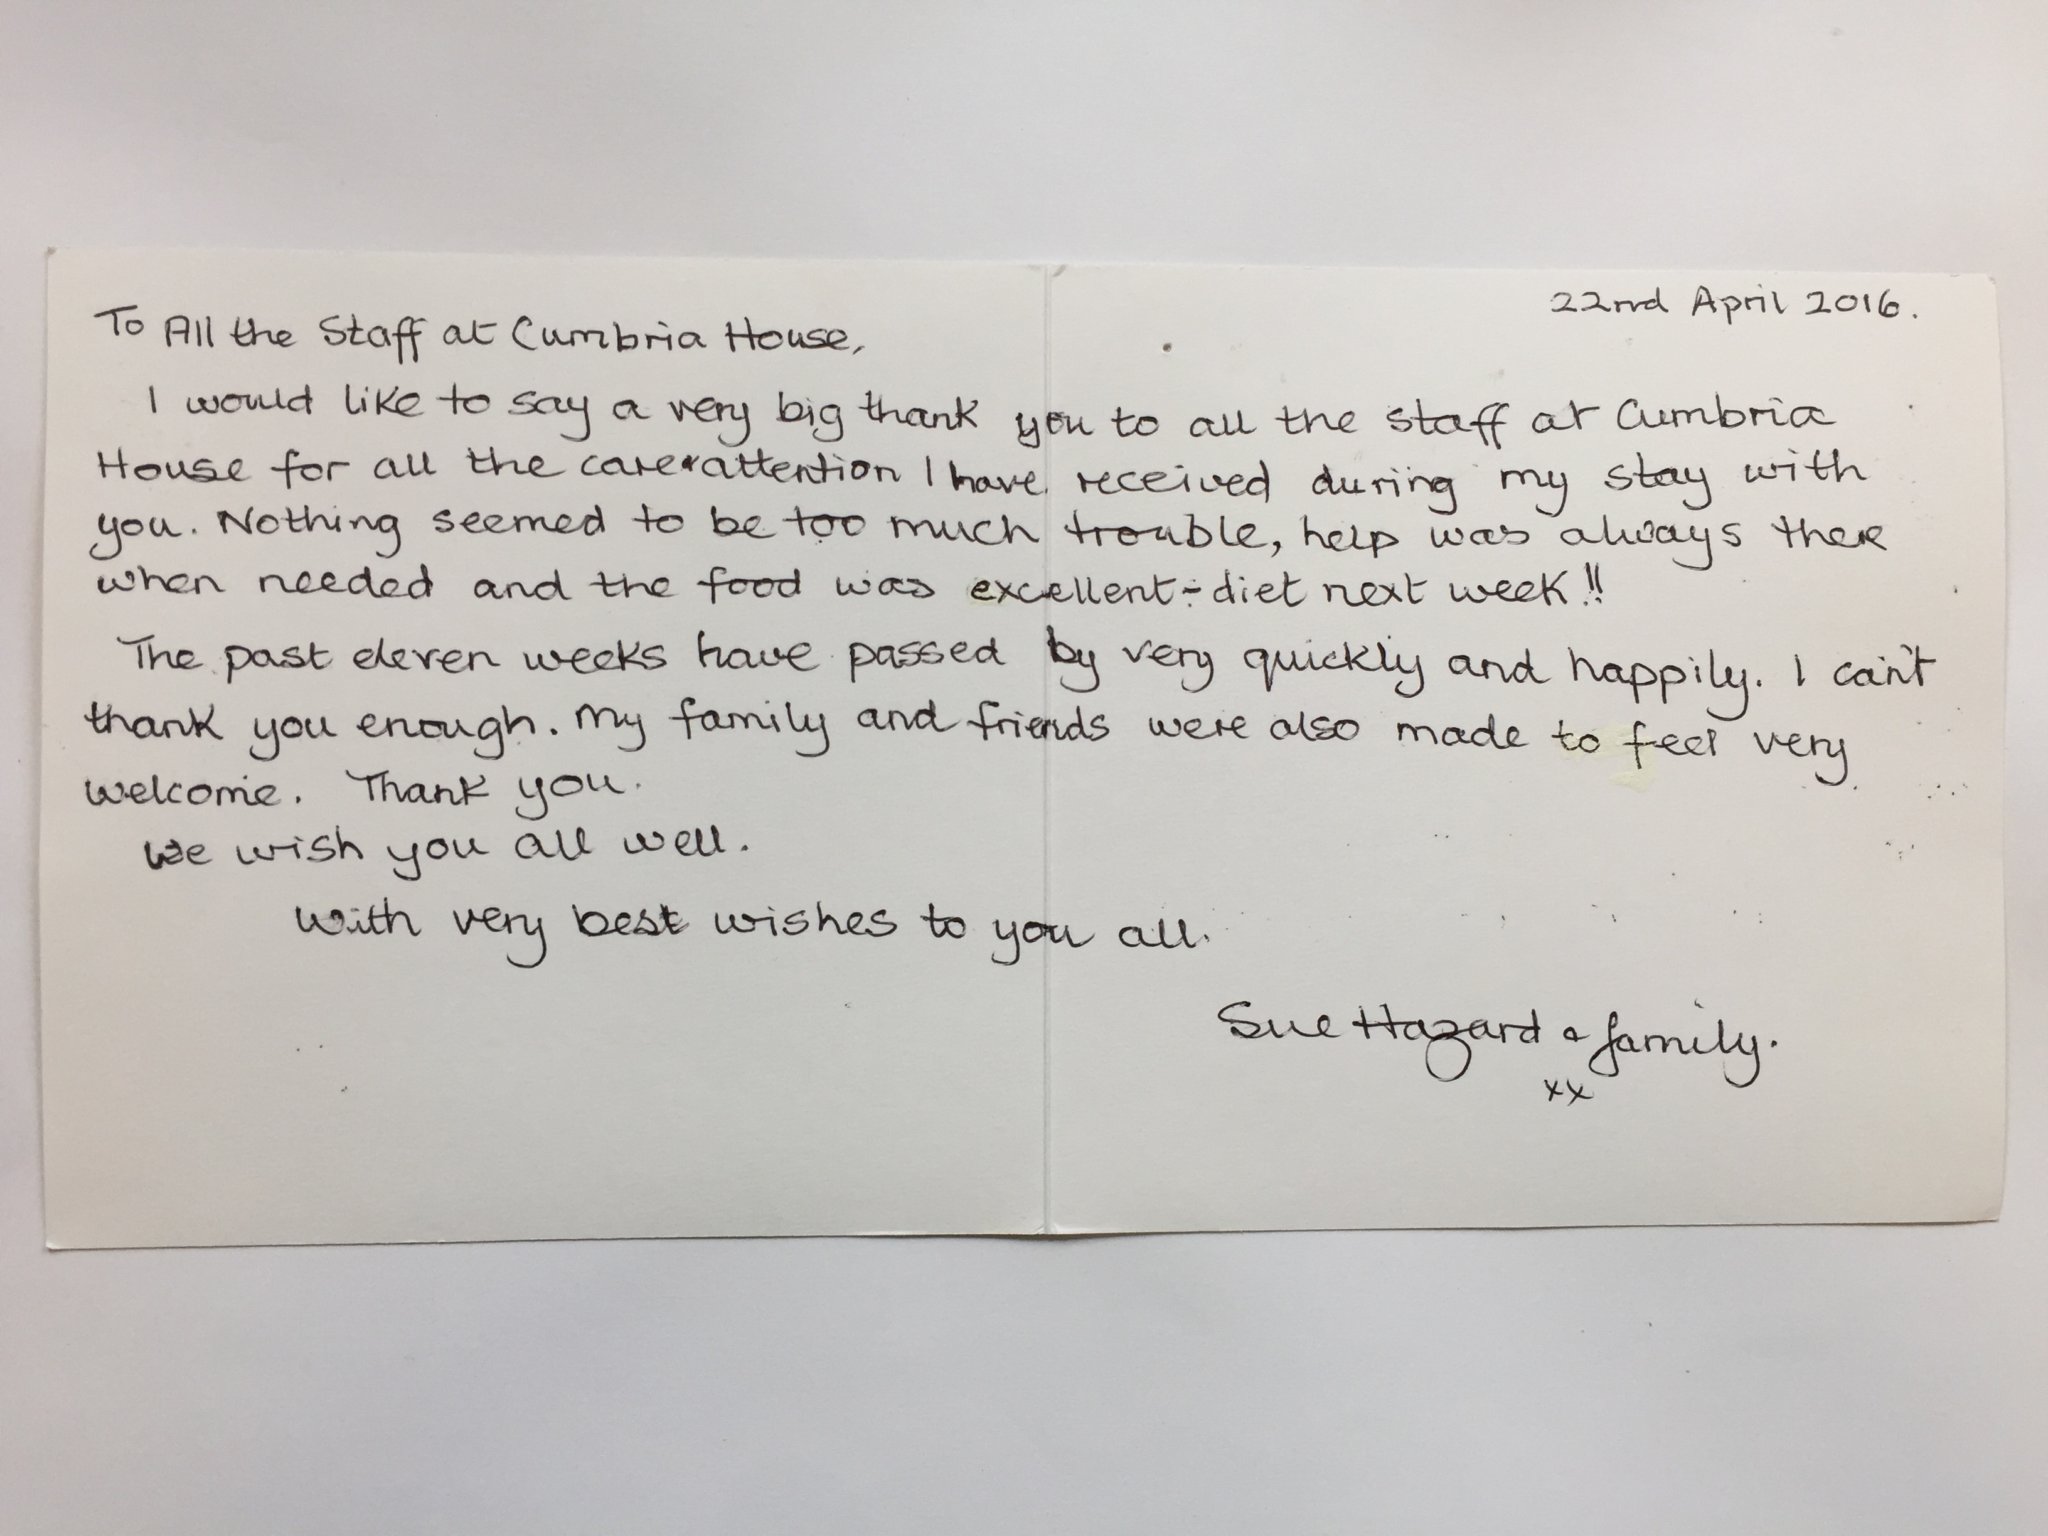 22nd April 2016.
To All the Staff at Cumbria House,
I would like to say a very big thank you to all the staff at Cumbria
House for all the care & attention I have received during my stay with
you. Nothing seemed to be too much trouble, help was always there
when needed and the food was excellent - diet next week!!
The past eleven weeks have passed by very quickly and happily. I can't
thank you enough. My family and friends were also made to feel very
welcome. Thank you.
We wish you all well.
With very best wishes to you all.
Sue Hazard & family.
xx